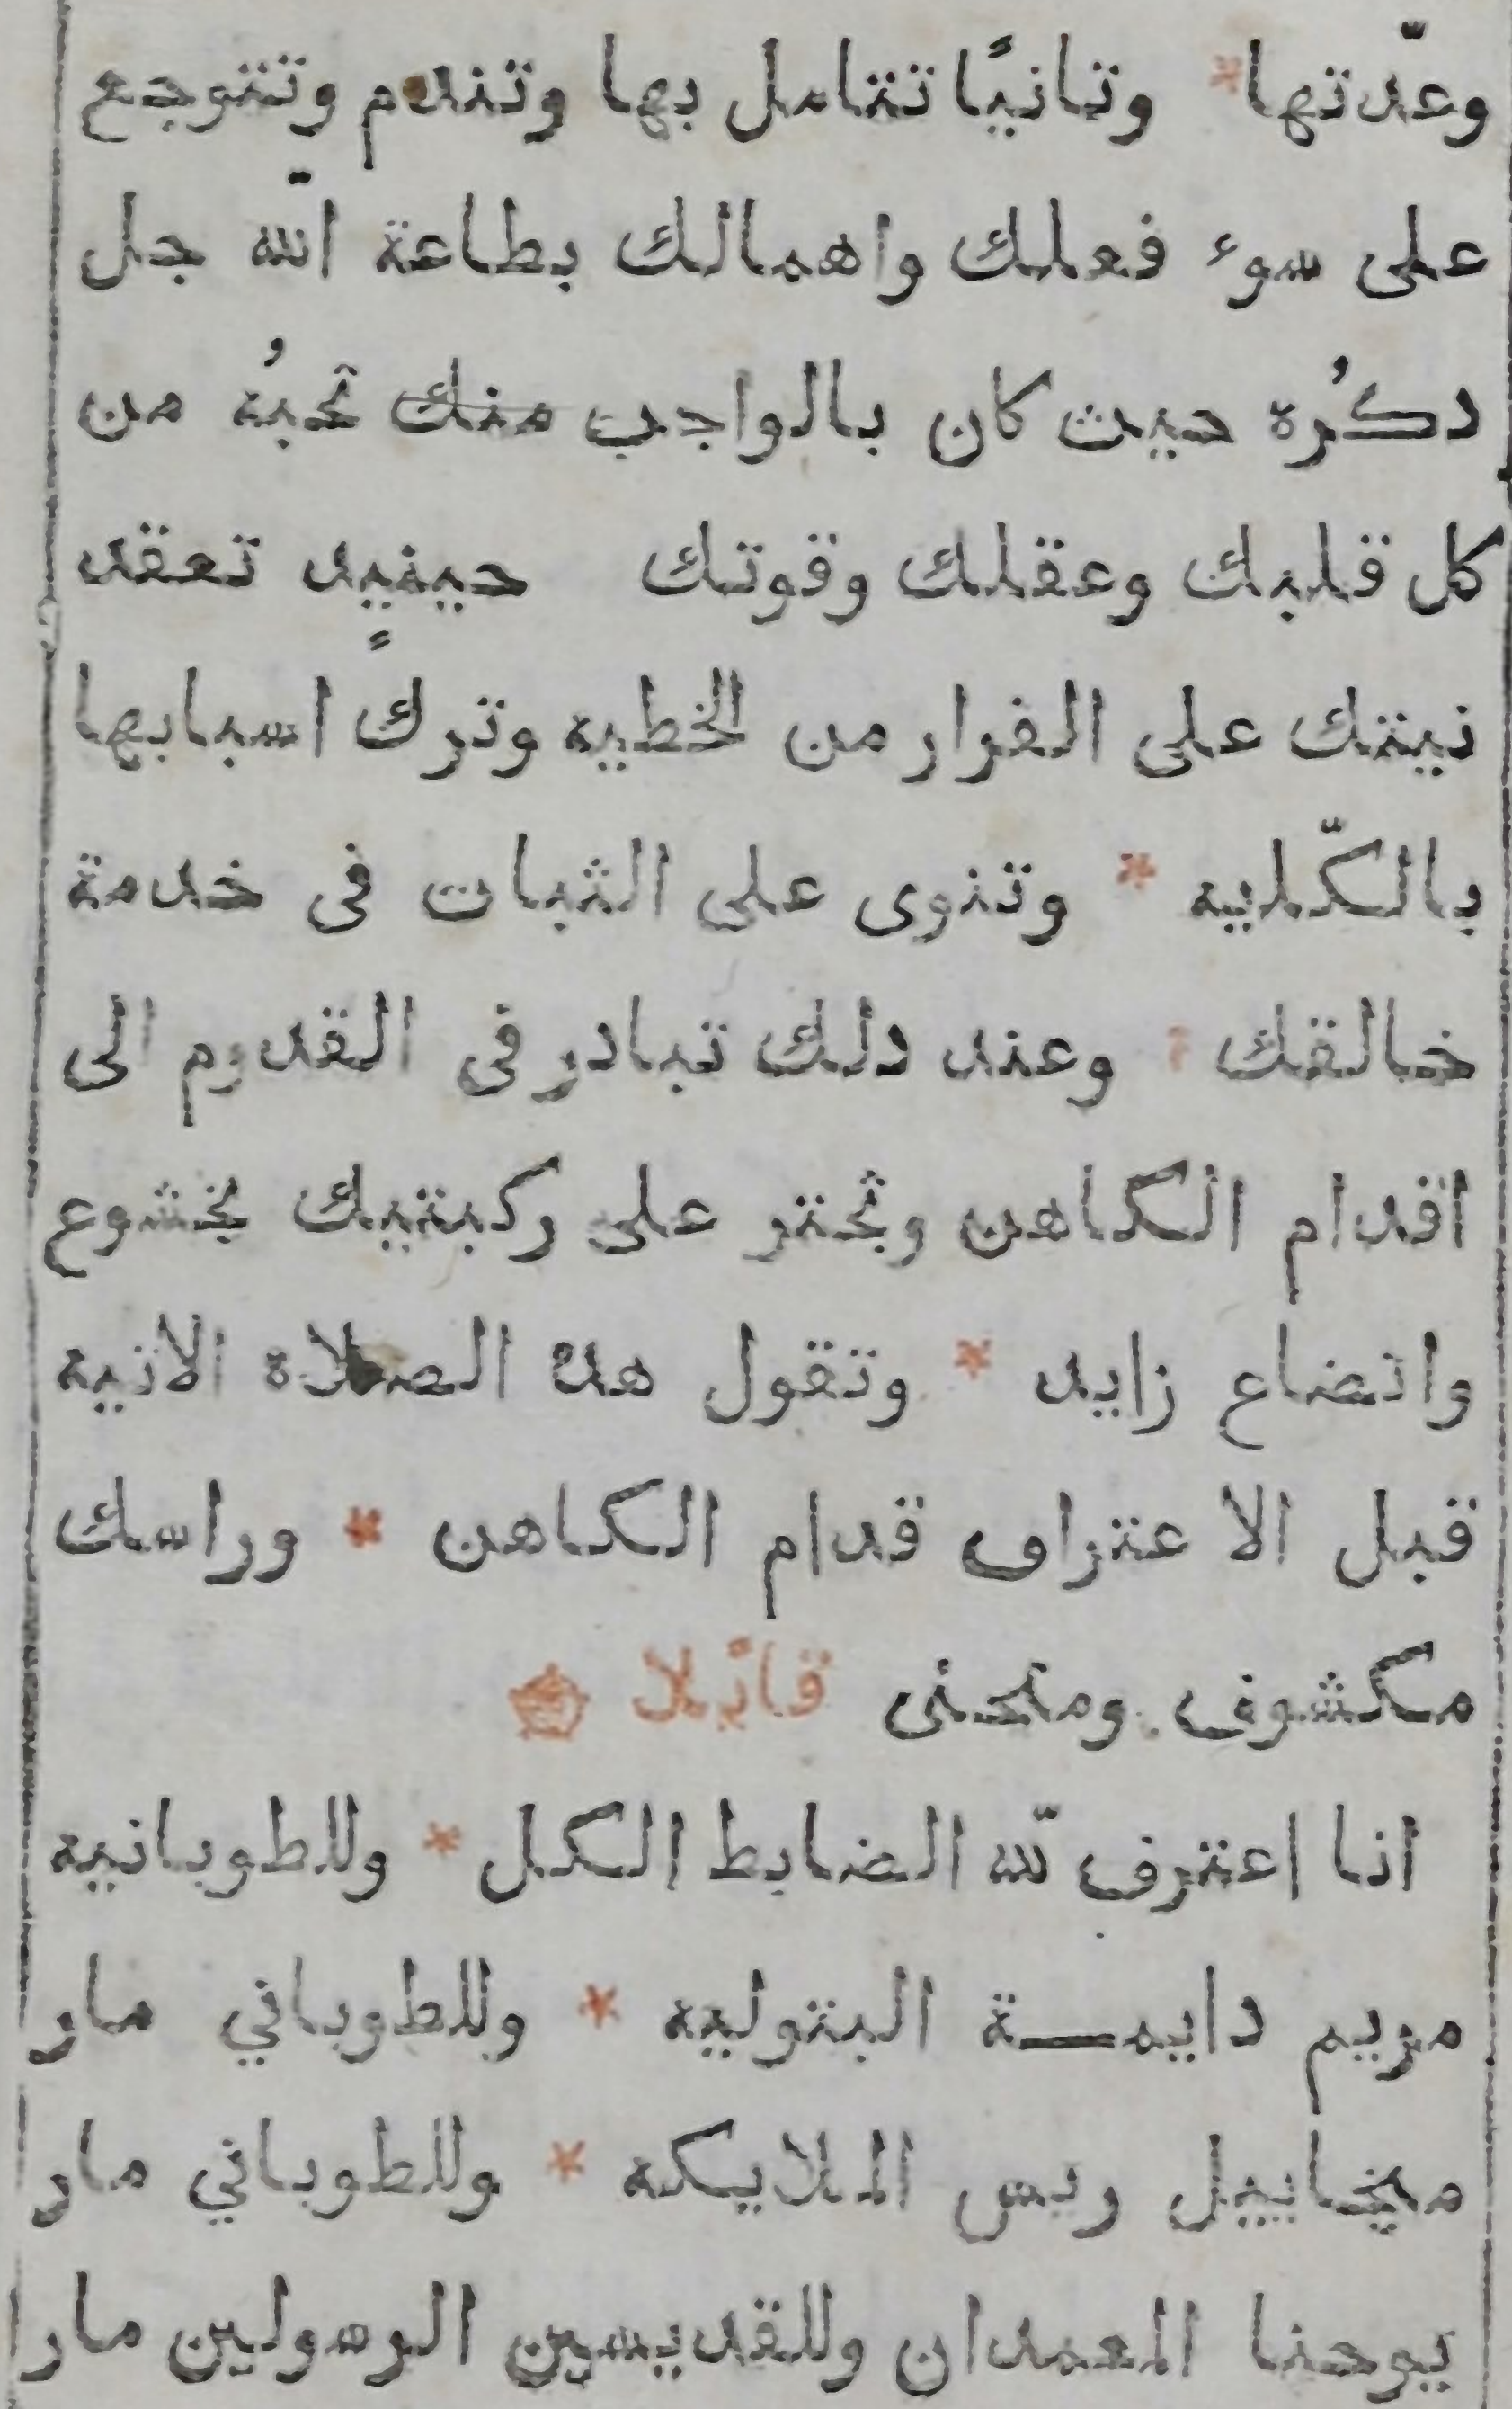 وعدّتها * وتانيًا تتامل بها وتندم وتتوجع
على سوء فعلك واهمالك بطاعة اللّه جل
دكرُه حيث كان بالواجب منك تحبُه من
كل قلبك وعقلك وقوتك حينيدٍ تعقد
نيتك على الفرار من الخطيه وتركٍ اسبابها
بالكّليه * وتنوى على الثبات فى خدمة
خالقك * وعند دلك تبادر فى القدوم الى
اقدام الكاهن وتجتر على ركبتيك بخشوع
واتضاع زايد * وتقول هده الصلاة الاتيه
قبل الاعتراف قدام الكاهن * وراسك
مكشوف ومنحنى قايًلا
انا اعترف للّه الضابط الكل * وللطوبانيه
مريم دايمة البتوليه * وللطوباني مار
ميخاييل ريس الملايكه * وللطوباني مار
يوحنا المعمدان وللقديسين الرسولين مار